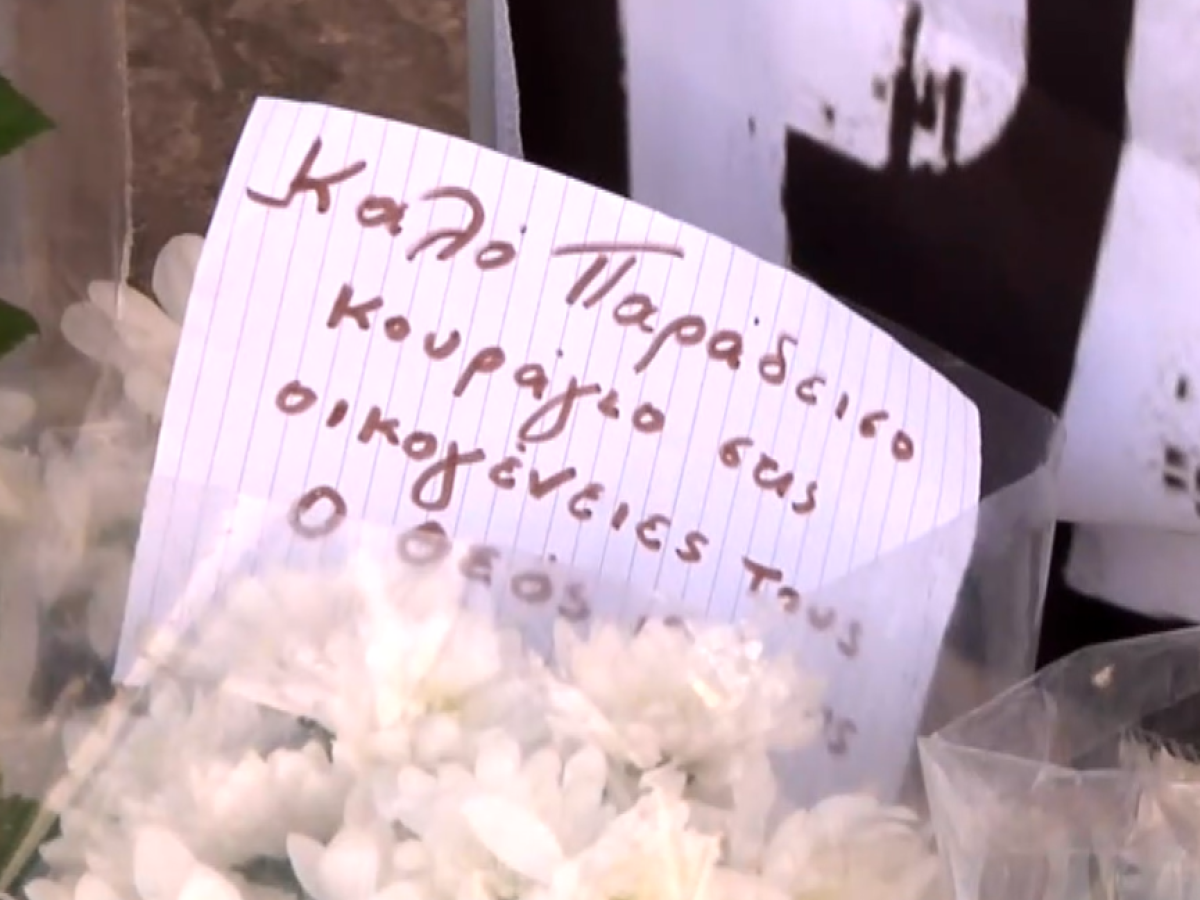 Καλό Παράδεισο
κουράγιο στις
οικογένειες τους
Ο Θεός